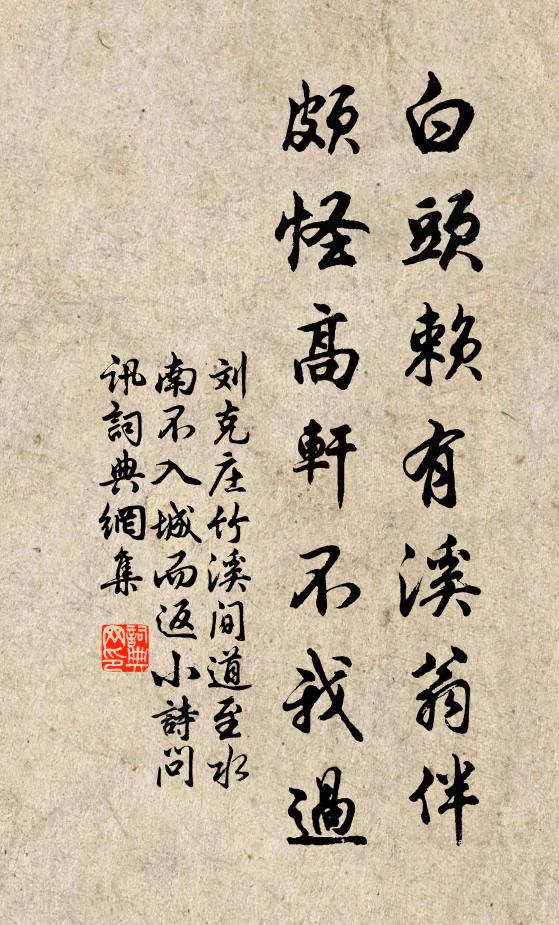 白頭賴有溪翁伴
頗怪高軒不我過
刘克庄竹溪间道至水
南不入城而返小詩問
訊詞典網集
詞典
网印